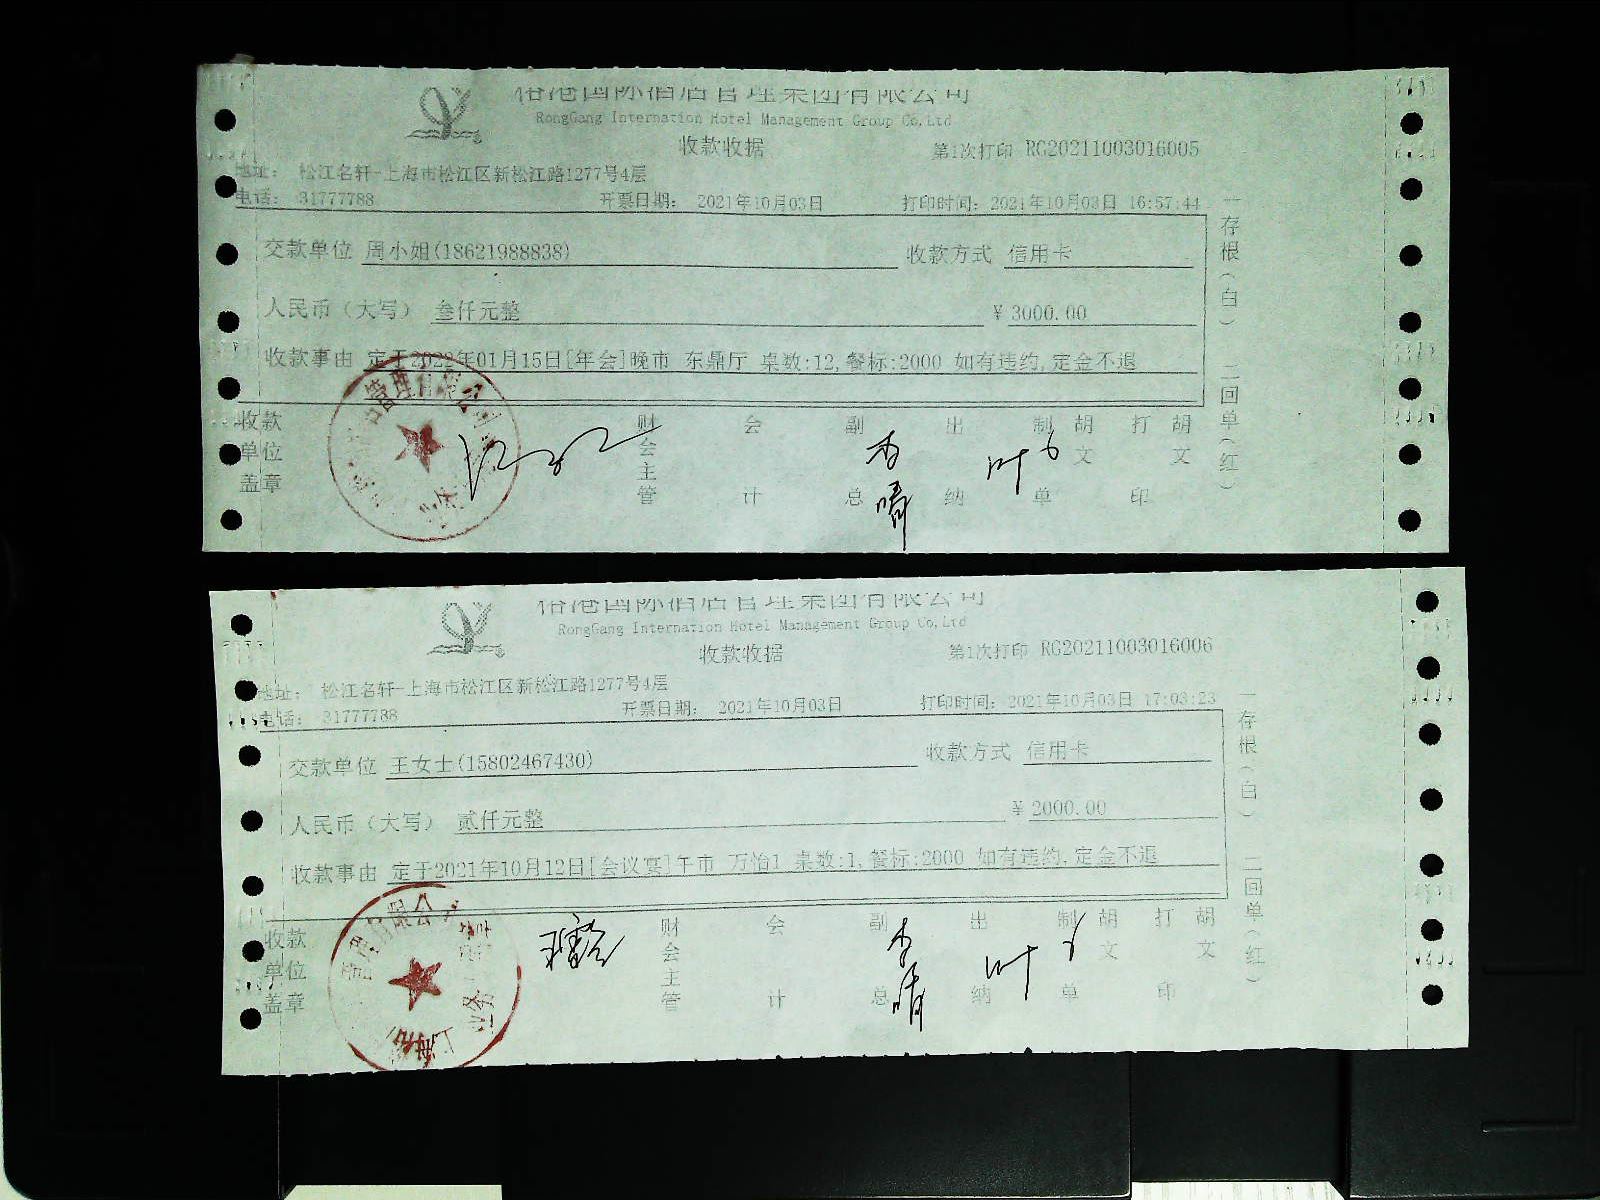 榕港国际酒店管理集团有限公司
RongGang Internation Hotel Management Group Co,Ltd
收款收据
第1次打印 RG20211003016005
地址： 松江名轩-上海市松江区新松江路1277号4层
电话： 31777788 开票日期： 2021年10月03日 打印时间： 2021年10月03日 16:57:44
交款单位 周小姐(18621988838) 收款方式 信用卡
人民币（大写） 叁仟元整 ￥3000.00
收款事由 定于2022年01月15日[年会]晚市 东鼎厅 桌数:12,餐标:2000 如有违约,定金不退
收款单位盖章 财会主管 会计 副总 李晴 出纳 叶 制单 胡文 打印 胡文
一存根（白） 二回单（红）
管理有限公司
业务
榕港国际酒店管理集团有限公司
RongGang Internation Hotel Management Group Co,Ltd
收款收据
第1次打印 RG20211003016006
地址： 松江名轩-上海市松江区新松江路1277号4层
电话： 31777788 开票日期： 2021年10月03日 打印时间： 2021年10月03日 17:03:23
交款单位 王女士(15802467430) 收款方式 信用卡
人民币（大写） 贰仟元整 ￥2000.00
收款事由 定于2021年10月12日[会议宴]午市 万怡1 桌数:1,餐标:2000 如有违约,定金不退
收款单位盖章 财会主管 会计 副总 李晴 出纳 叶 制单 胡文 打印 胡文
一存根（白） 二回单（红）
管理有限公
业务
上海